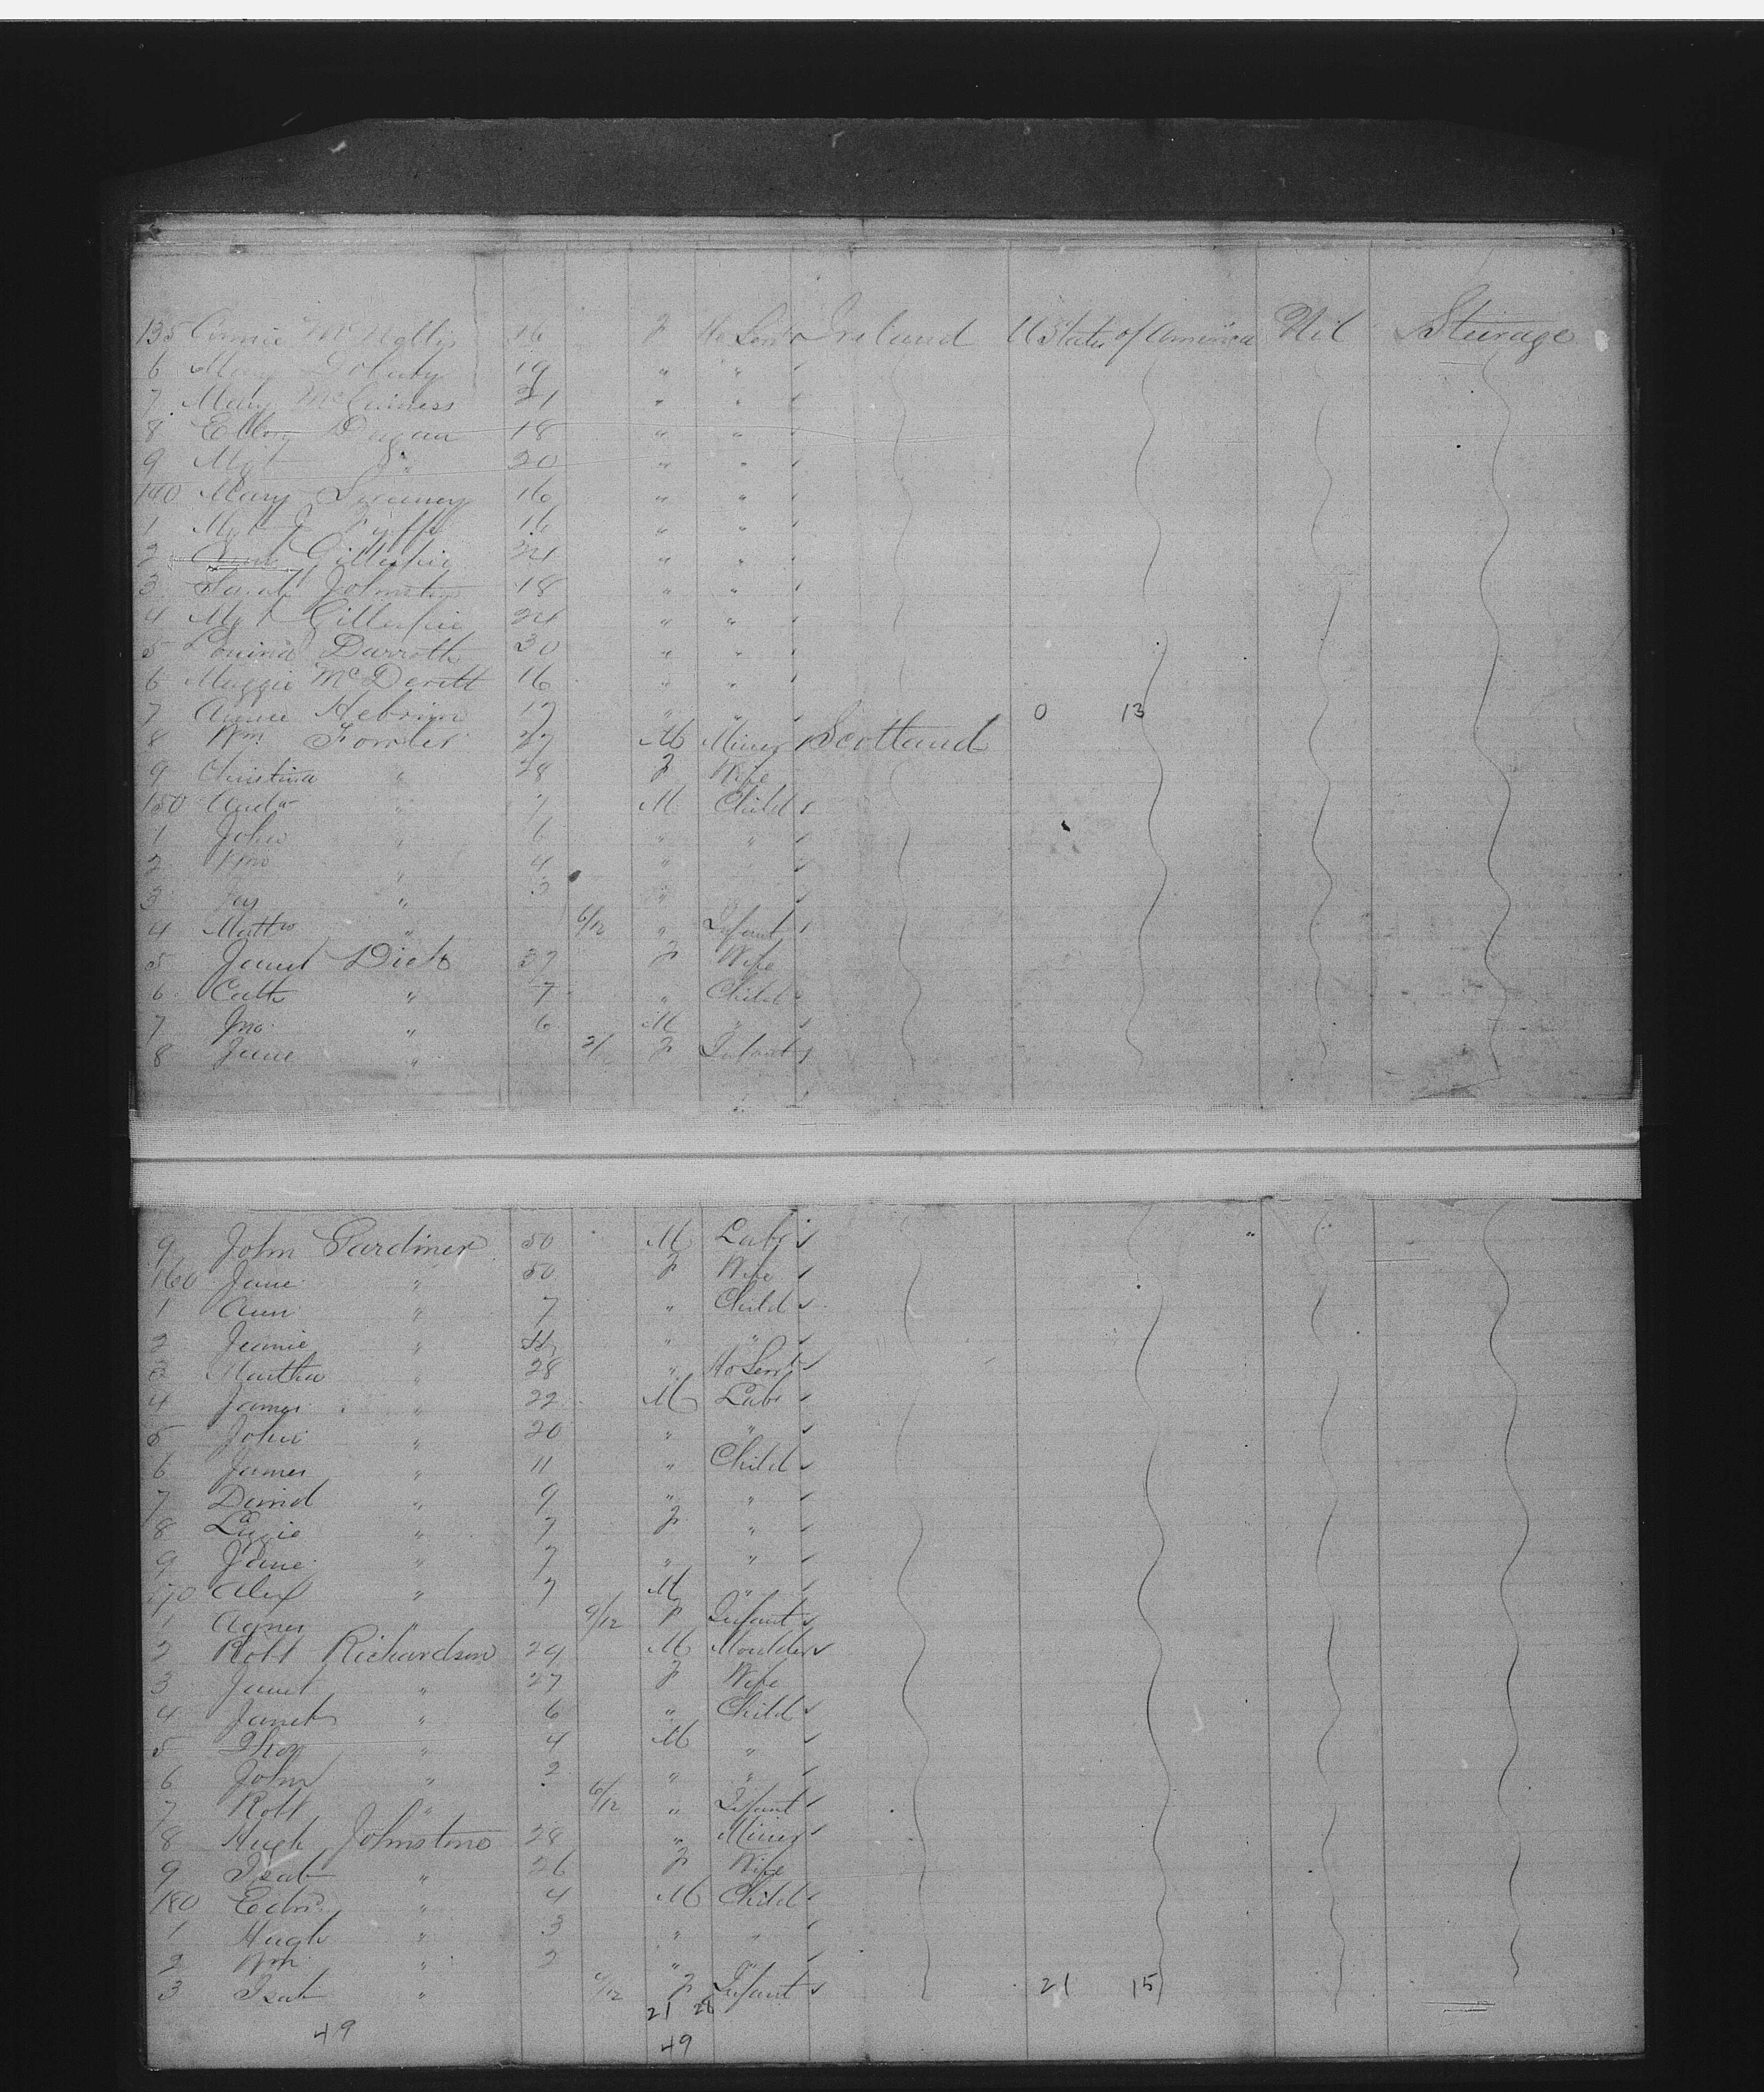 135 Annie McNellis 16 F Ho Servt Ireland U States of America Nil Steerage
6 Mary Doherty 19 " "
7 Mary McGuiness 21 " "
8 Ellen Dugan 18 " "
9 Mgt " 20 " "
140 Mary Sweeney 16 " "
1 Mgt J Fyffe 16 " "
2 Gillespie 24 " "
3 Sarah Johnston 18 " "
4 Mgt Gillespie 24 " "
5 Darroth 30 " "
6 Maggie McDevitt 16 " "
7 Annie 17 " " 0 13
8 Wm Fowler 27 M Miner Scotland
9 Christina " 28 F Wife
150 Andw " 7 M Child
1 John " 6 " "
2 Wm " 4 "
3 Jas " 3 "
4 Mattw " 6/12 " Infant
5 Janet Dick 37 F Wife
6 Cath " 7 " Child
7 Jno " 6 M "
8 Jane " F Infant
9 John Gardiner 50 M Labr
160 Jane " 50 F Wife
1 Ann " 7 " Child
2 Jeanie " " "
3 Martha " 28 " Ho Servt
4 James " 22 M Labr
5 John " 20 " "
6 James " 11 " Child
7 David " 9 " "
8 Lizzie " 7 F "
9 Jane " 7 " "
170 Alex " 7 M "
1 Agnes " 9/12 F Infant
2 Robt Richardson 29 M Moulder
3 Janet " 27 F Wife
4 Janet " 6 " Child
5 Thos " 4 M "
6 John " 2 " "
7 Robt " 6/12 " Infant
8 Hugh Johnstone 28 " Miner
9 Isab " 26 F Wife
180 Edwd " 4 M Child
1 Hugh " 3 " "
2 Wm " 2 " "
3 Isab " F Infant 21 15
21 28
49 49